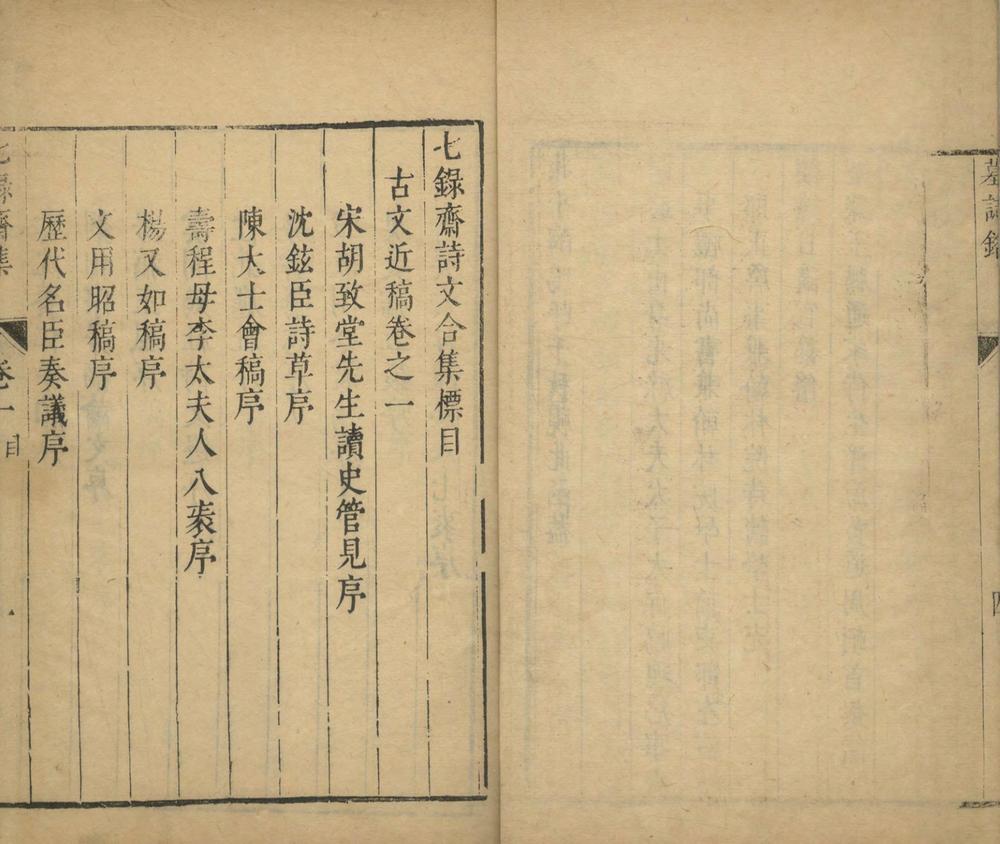 墓誌銘
四
七錄齋詩文合集標目
古文近稿卷之一
宋胡致堂先生讀史管見序
沈鉉臣詩草序
陳大士會稿序
壽程母李太夫人八袠序
楊又如稿序
文用昭稿序
歷代名臣奏議序
七錄齋集
卷一
目
一